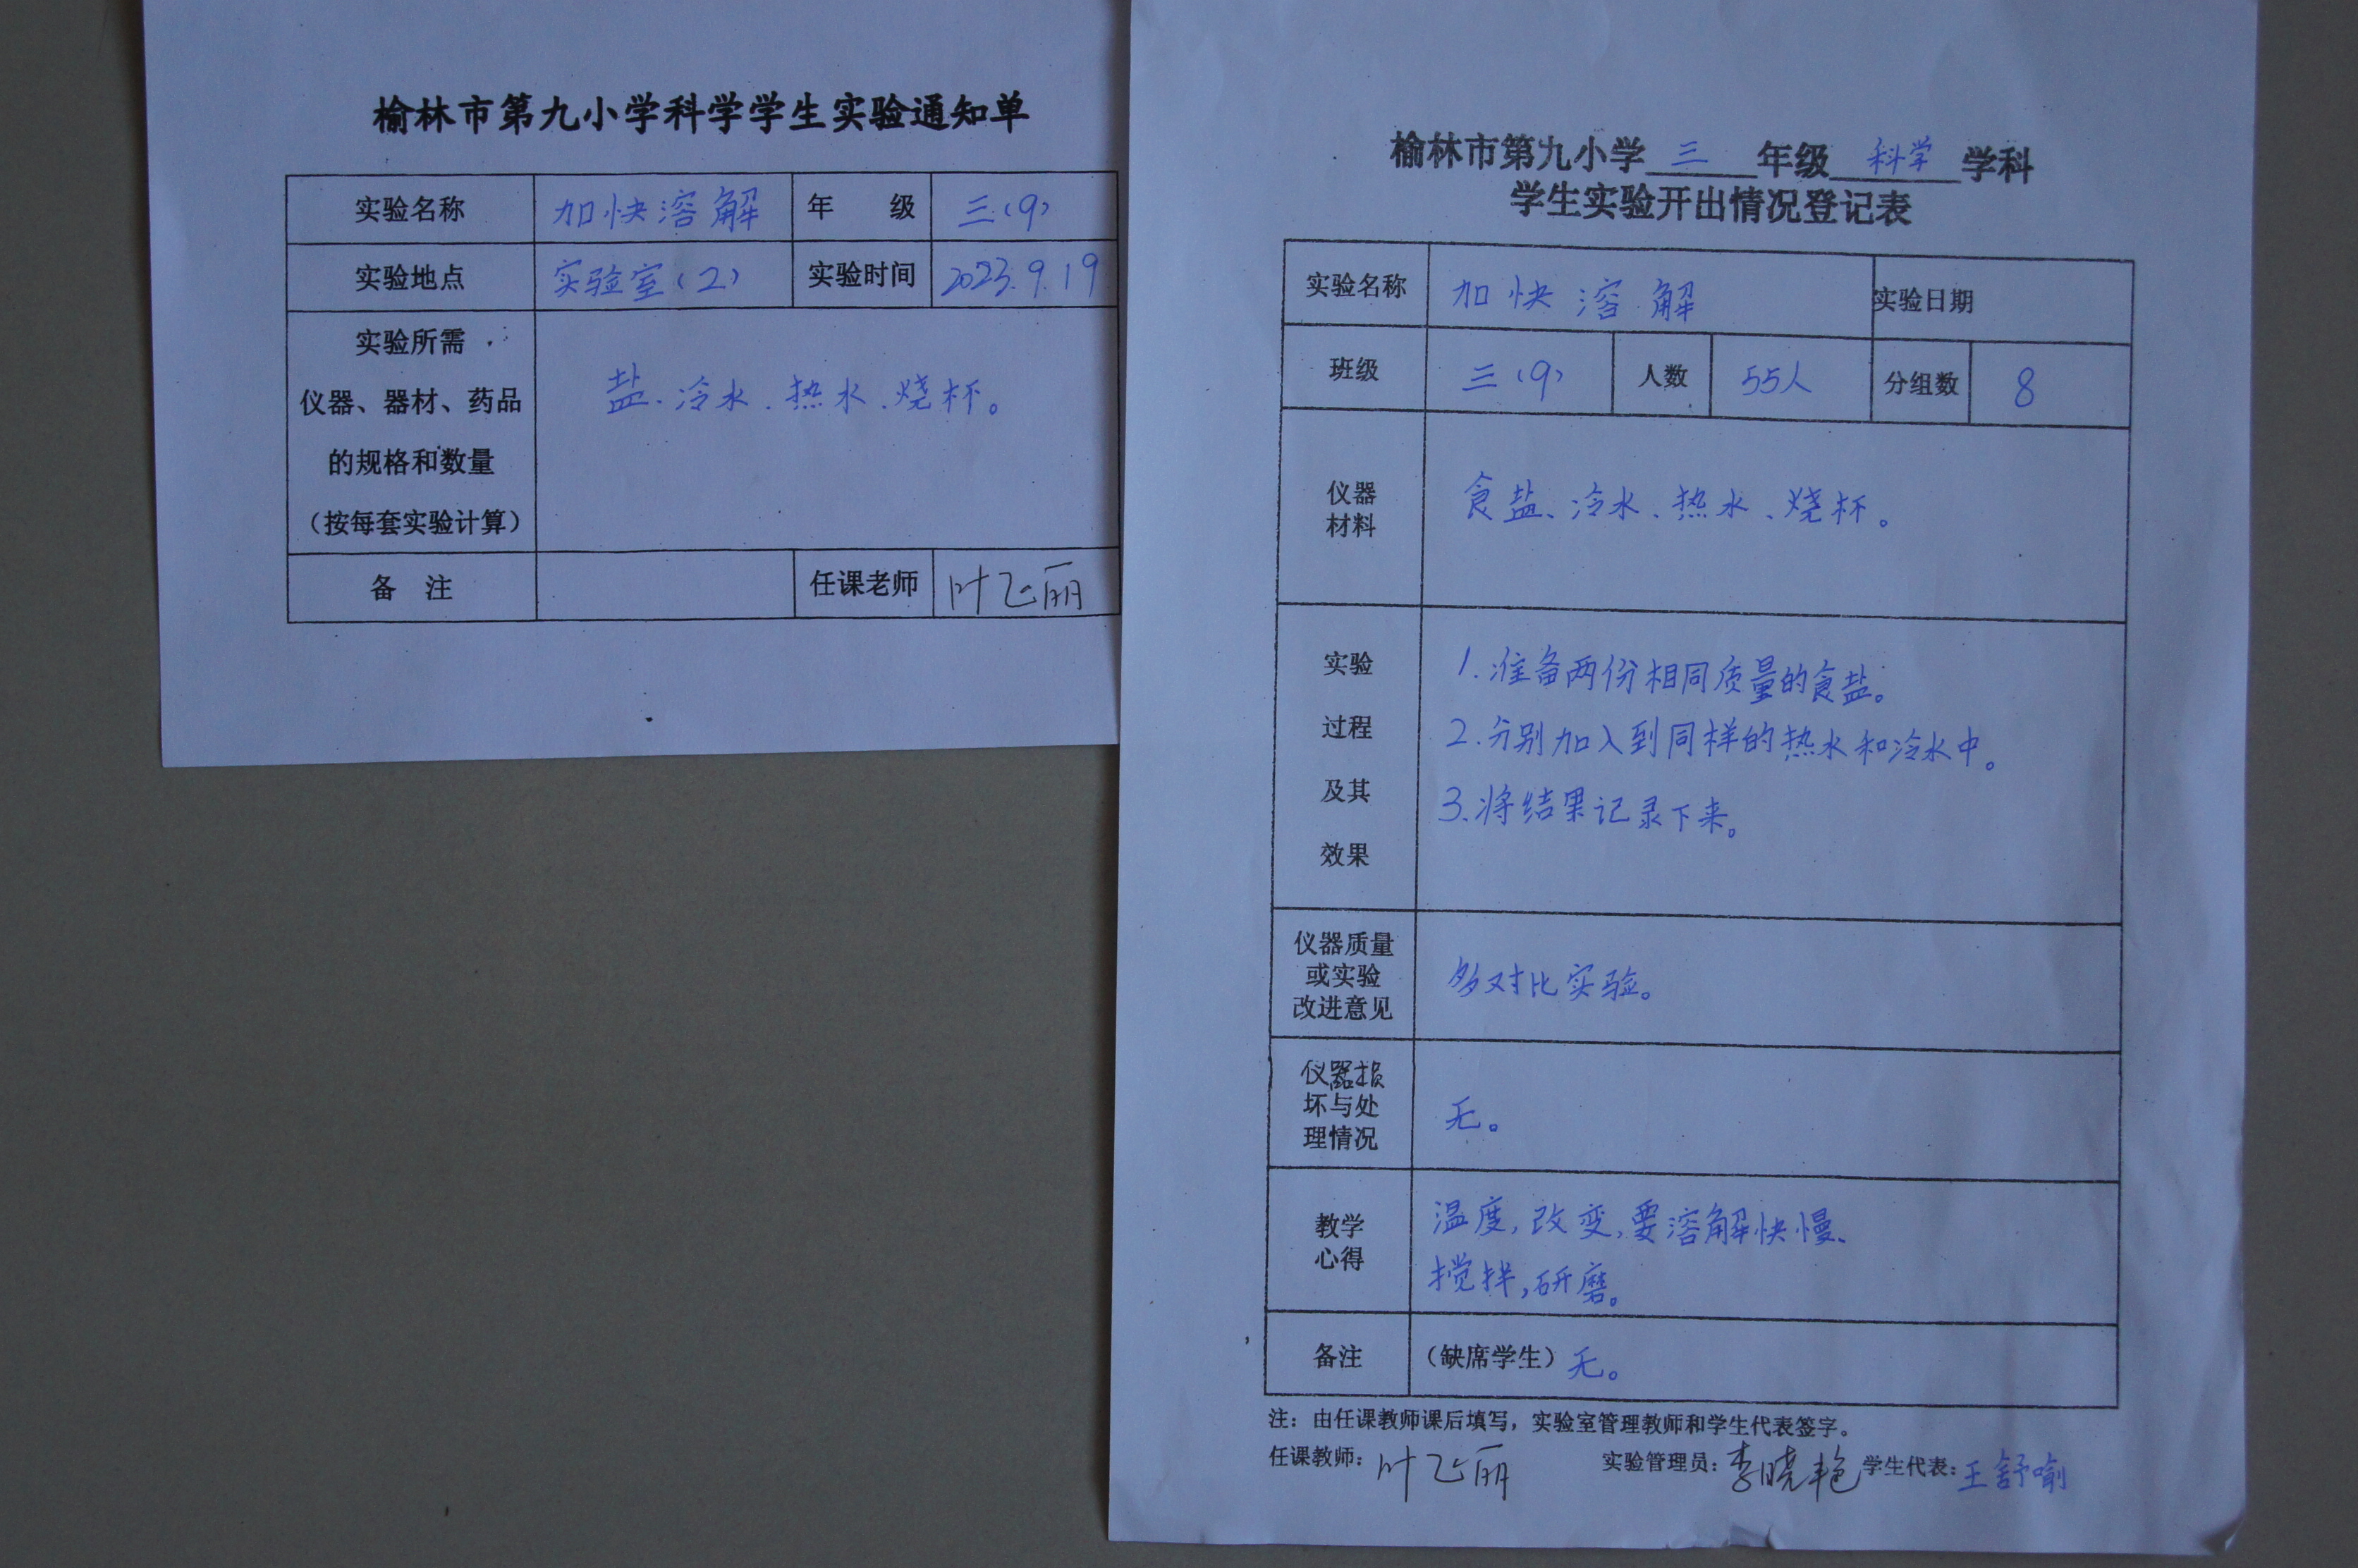 榆林市第九小学科学学生实验通知单
实验名称 加快溶解 年 级 三(9)
实验地点 实验室(2) 实验时间 2023.9.19
实验所需
仪器、器材、药品
的规格和数量
(按每套实验计算)
盐、冷水、热水、烧杯。
备 注 任课老师 叶飞丽
榆林市第九小学 三 年级 科学 学科
学生实验开出情况登记表
实验名称 加快溶解 实验日期
班级 三(9) 人数 55人 分组数 8
仪器
材料
食盐、冷水、热水、烧杯。
实验
过程
及其
效果
1.准备两份相同质量的食盐。
2.分别加入到同样的热水和冷水中。
3.将结果记录下来。
仪器质量
或实验
改进意见
多对比实验。
仪器损
坏与处
理情况
无。
教学
心得
温度,改变,要溶解快慢、
搅拌,研磨。
备注 (缺席学生) 无。
注:由任课教师课后填写,实验室管理教师和学生代表签字。
任课教师: 叶飞丽 实验管理员: 李晓艳 学生代表: 王舒喻